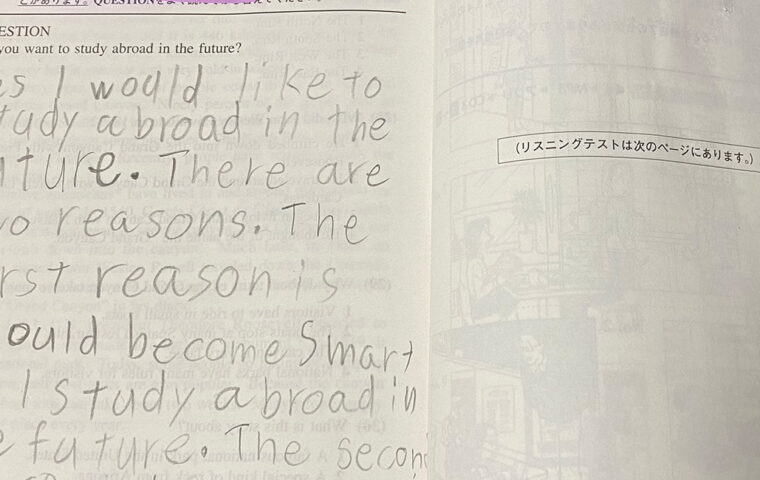 QUESTIONをよく
ESTION
you want to study abroad in the future?
s I would like to
tudy abroad in the
uture. There are
wo reasons. The
rst reason is
ould become Smart
I study abroad in
e future. The secon
(リスニングテストは次のページにあります。)